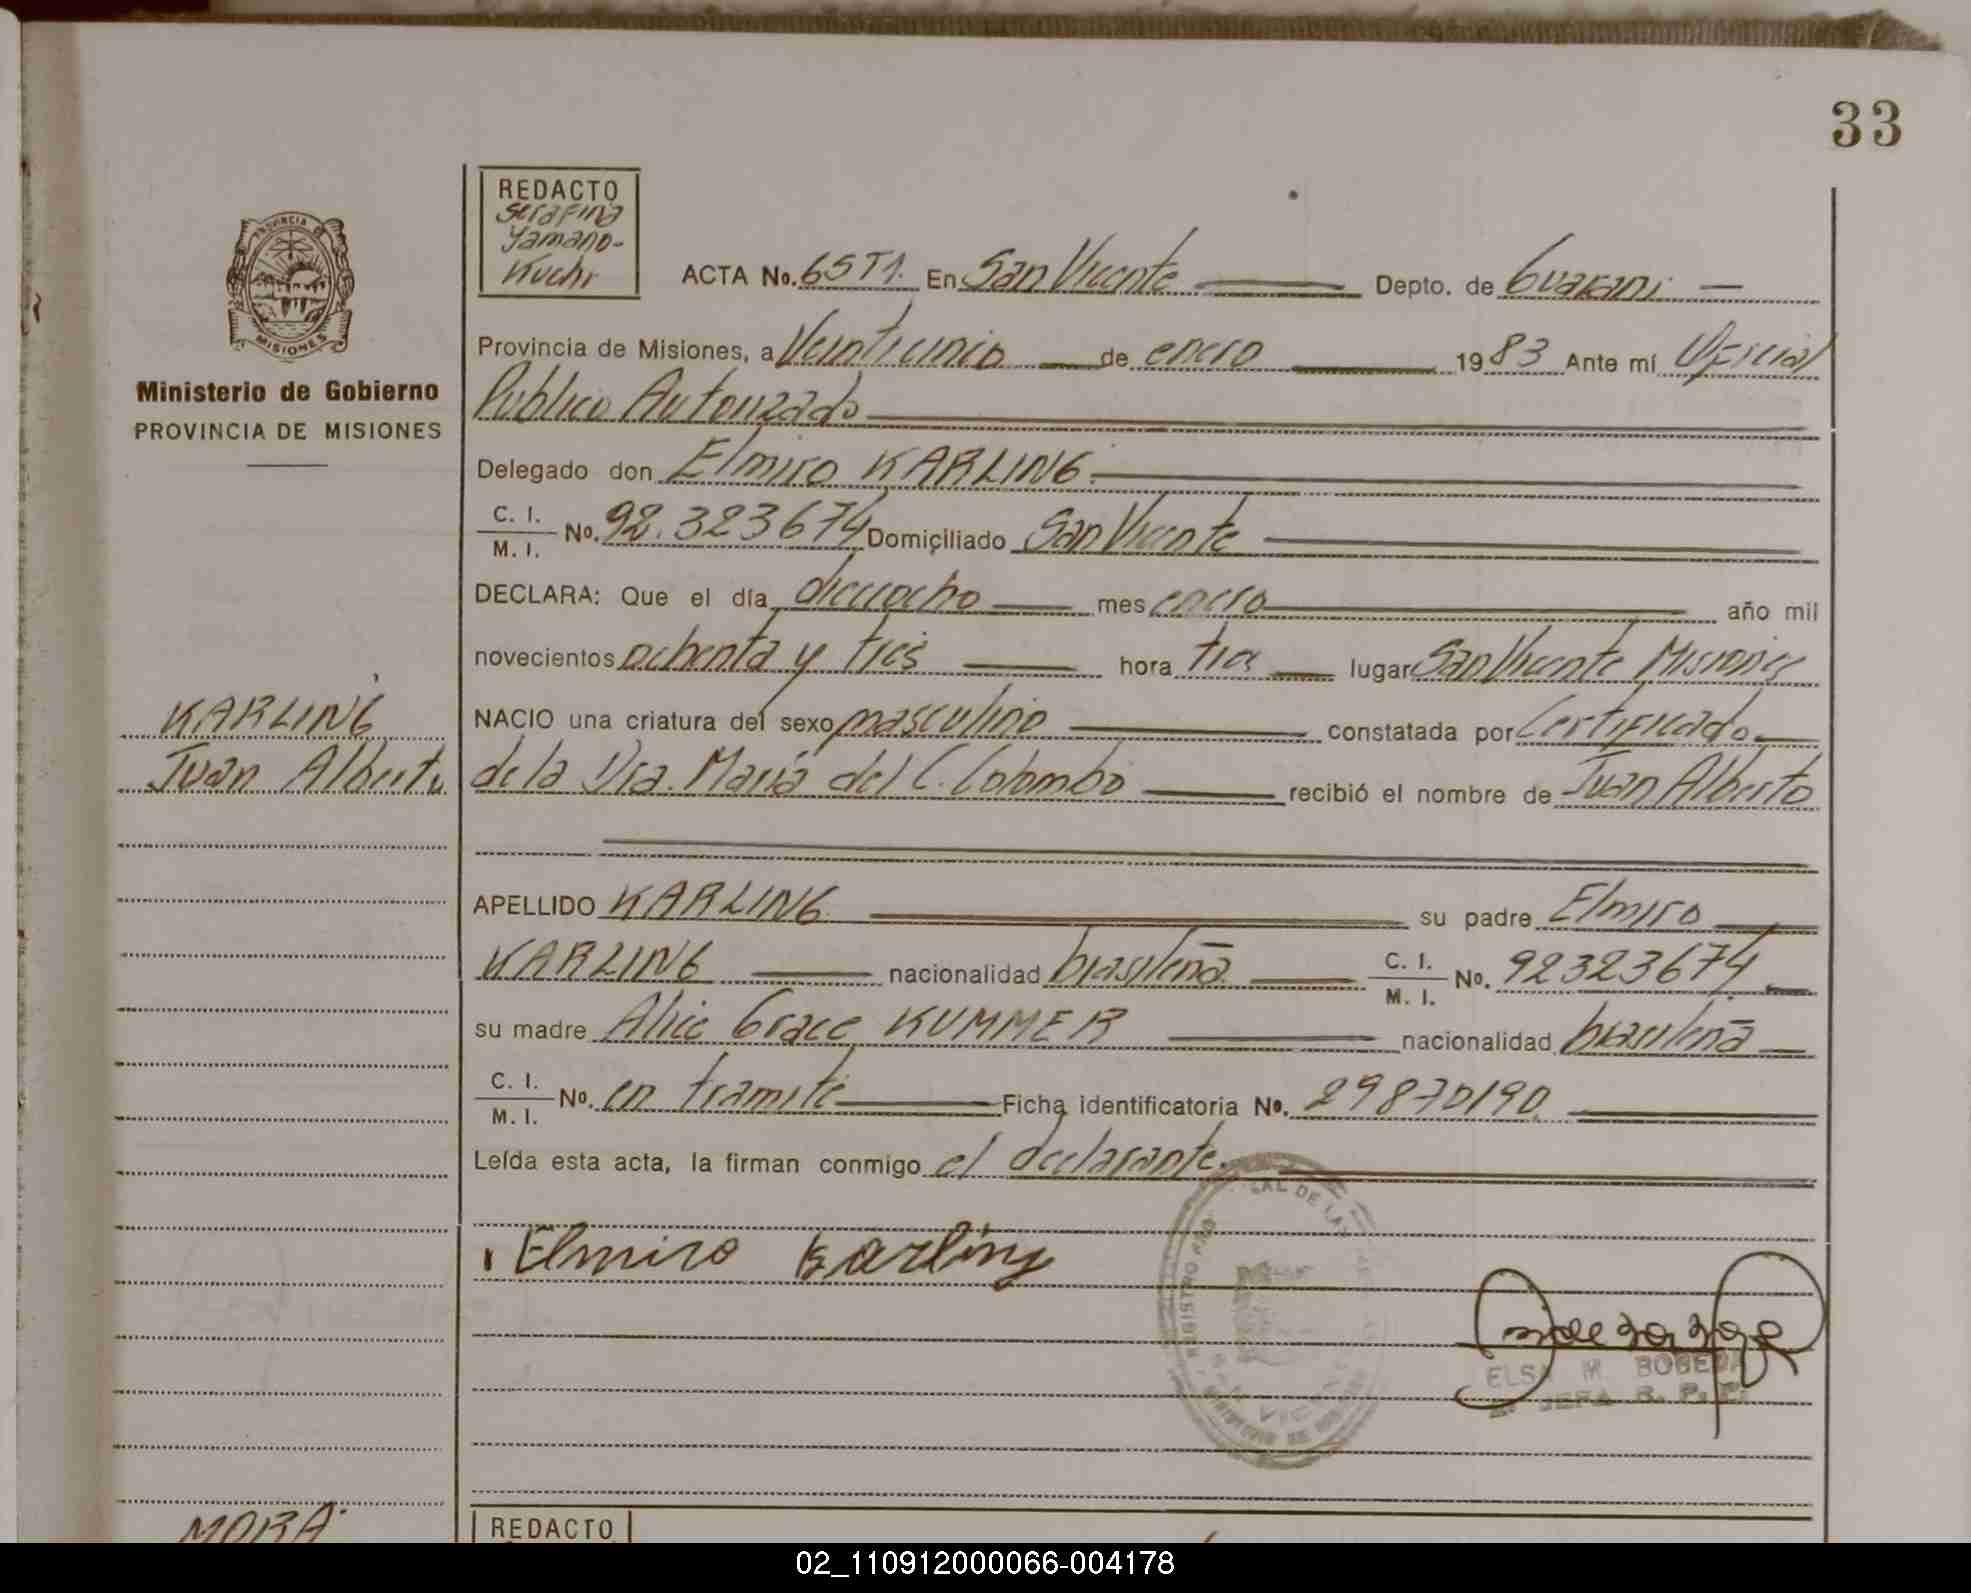 33
REDACTO
Serafina
Yamano-
Kuchi
ACTA No. 65T1. En San Vicente Depto. de Guarani
PROVINCIA DE
MISIONES
Ministerio de Gobierno
PROVINCIA DE MISIONES
Provincia de Misiones, a Veinticinco de enero 1983 Ante mí Oficial
Publico Autorizado
Delegado don Elmiro KARLING.
C. I.
M. I.
No. 92.323674 Domiciliado San Vicente
DECLARA: Que el día dieciocho mes enero año mil
novecientos ochenta y tres hora tres lugar San Vicente Misiones
KARLING
Juan Alberto
NACIO una criatura del sexo masculino constatada por Certificado
de la Dra. Maria del C. Colombo recibió el nombre de Juan Alberto
APELLIDO KARLING su padre Elmiro
KARLING nacionalidad brasileña C. I.
M. I.
No. 92323674
su madre Alice Grace KUMMER nacionalidad brasileña
C. I.
M. I.
No. en tramite Ficha identificatoria No. 29870190
Leída esta acta, la firman conmigo el declarante.
Elmiro Karling
REGISTRO DE LAS
ELSA M. BOBEDA
JEFA R. P.
MORA
REDACTO
02_110912000066-004178